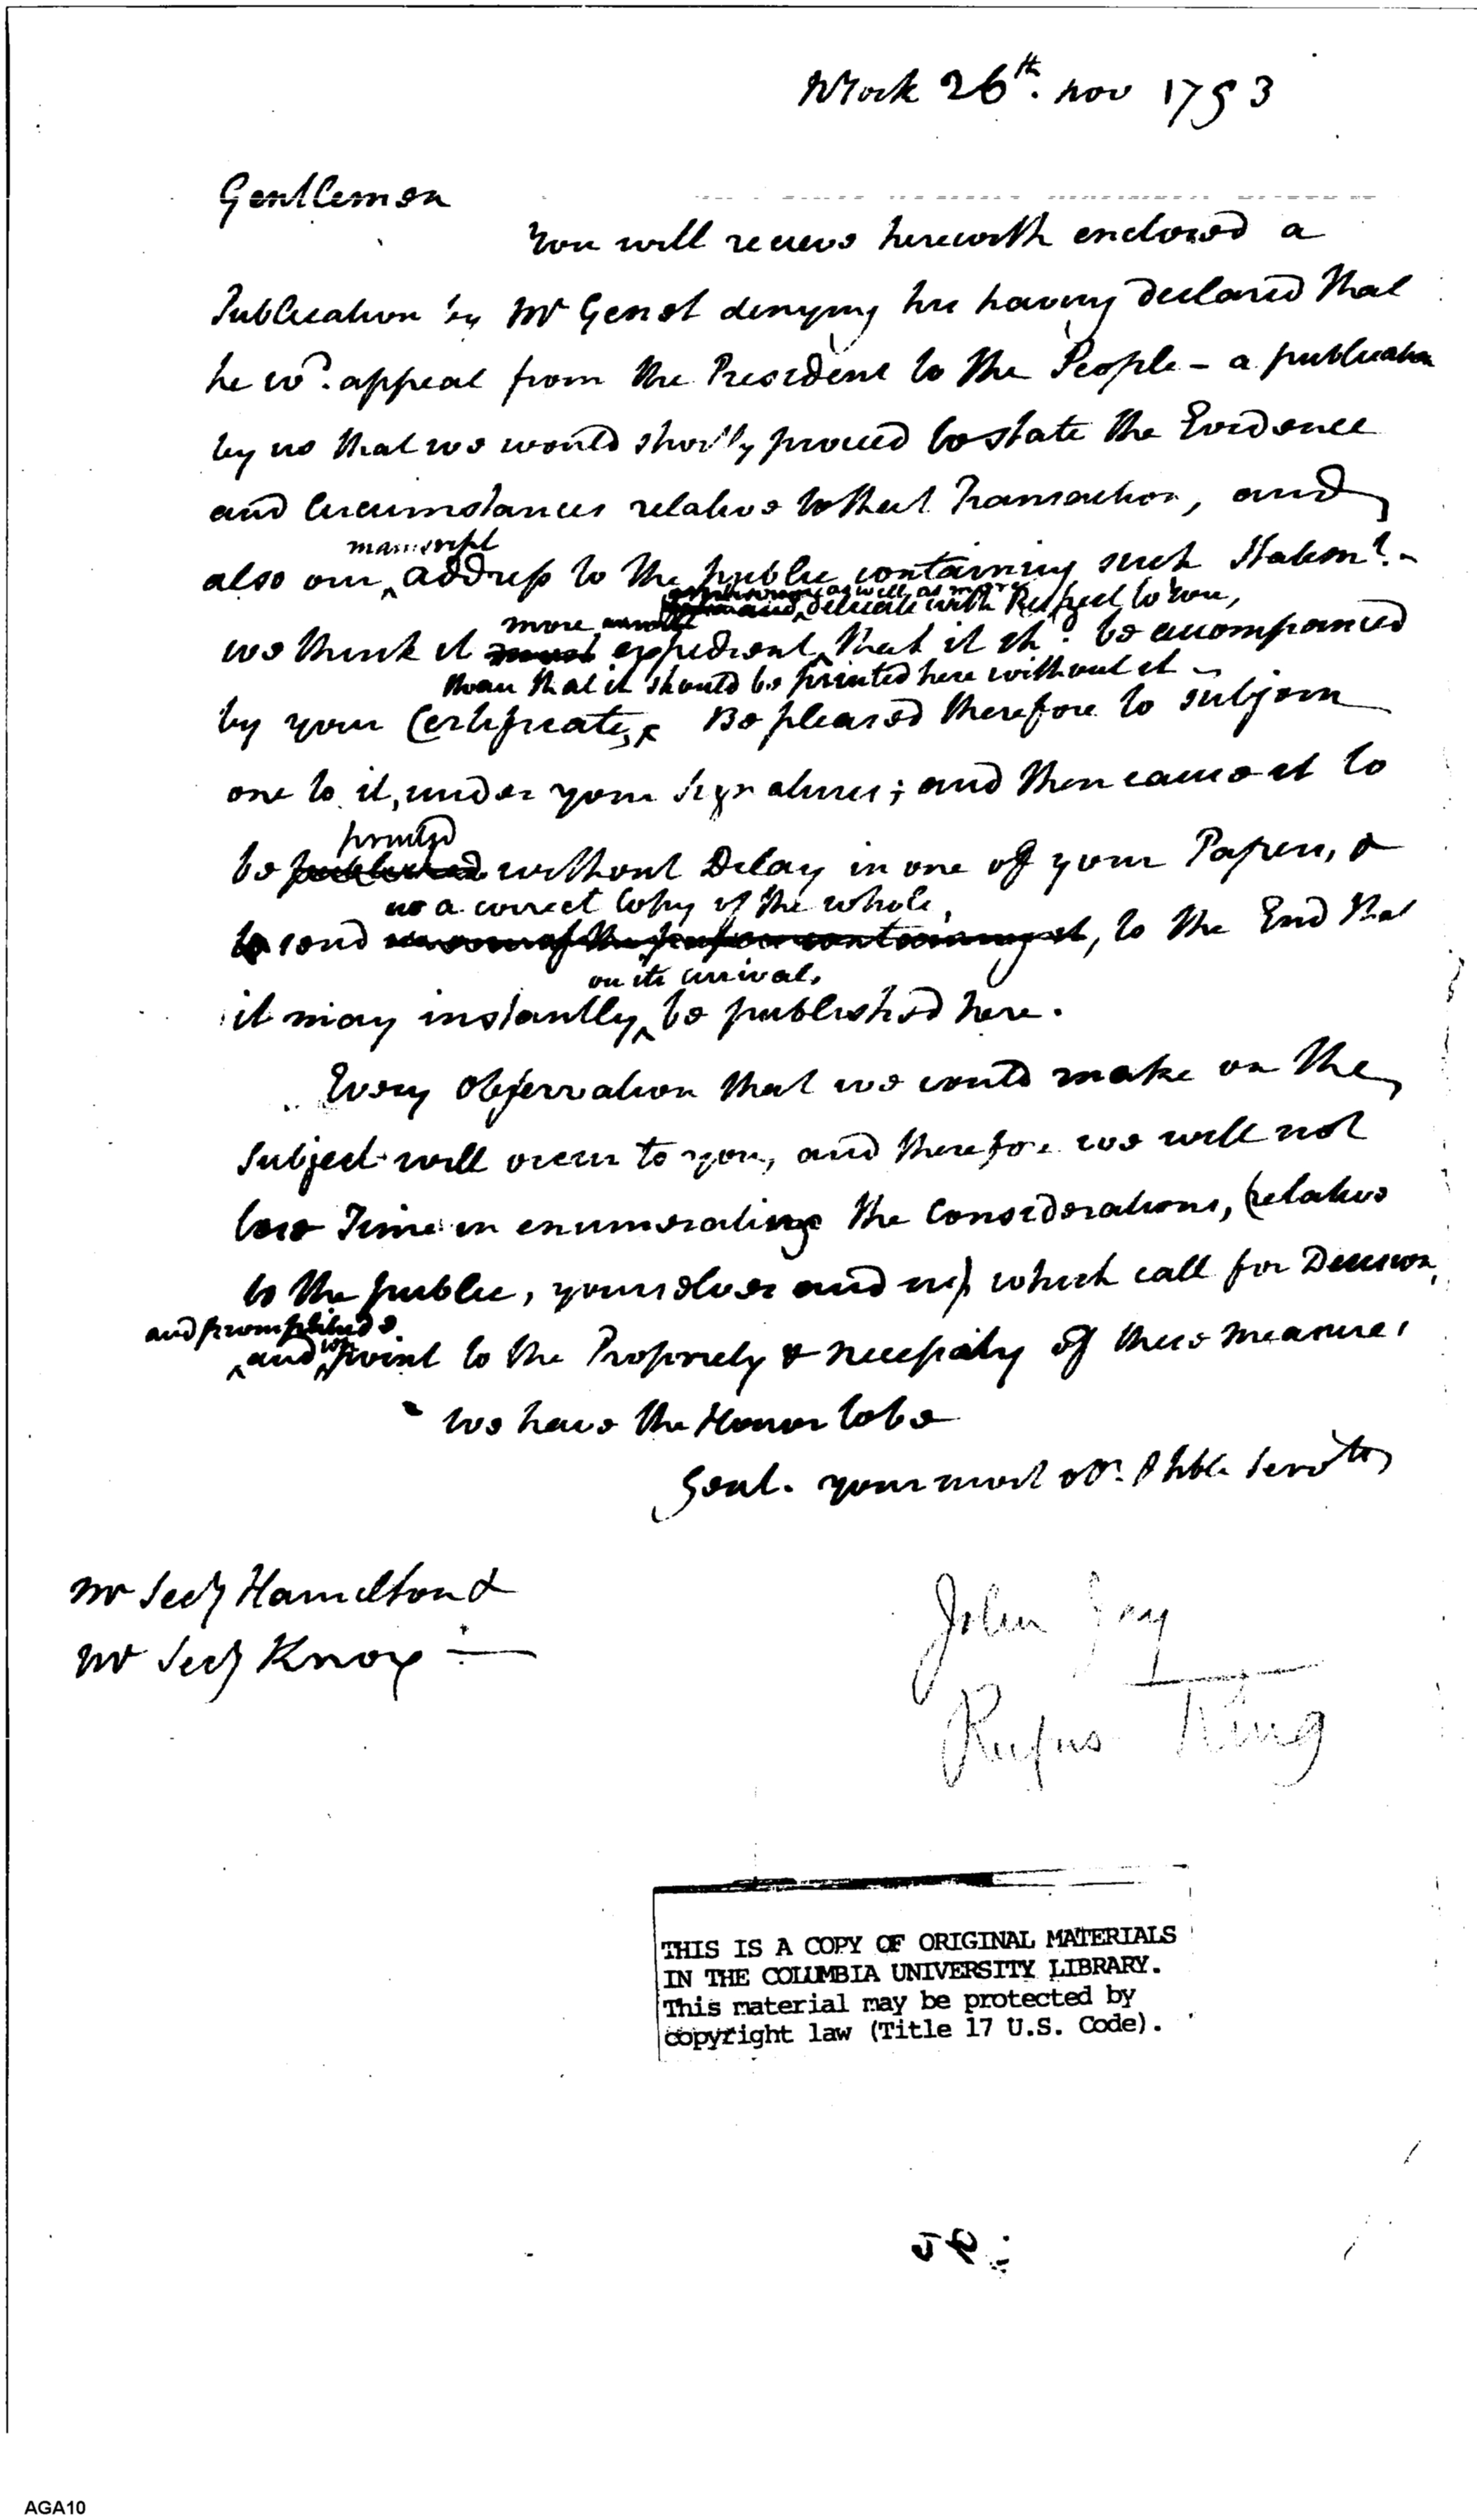 NYork 26th. Nov 1793
Gentlemen
You will recieve herewith enclosed a
Publication by Mr Genet denying his having declared that
he wd. appeal from the President to the People – a publication
by us that we would shortly proceed to state the Evidence
and Circumstances relative to that Transaction, and
manuscript
also our address to the public containing such Statemt. –
as well as more
delicate with Respect to You,
more
we think it expedient that it shd. be accompanied
than that it should be printed here without it –
by your Certificate, Be pleased therefore to subjoin
one to it, under your Signatures; and then cause it to
printed
be published without Delay in one of your Papers, &
us a correct Copy of the whole,
to send us some of the papers containing it, to the End that
on its arrival,
it may instantly be published here.
Every observation that we could make on the
Subject will occur to you, and therefore we will not
lose Time in enumerating the Considerations, (relative
to the public, yourselves and us) which call for Decision,
and promptitude
and wh point to the Propriety & necessity of these measures
We have the Honor to be
Gent. your most obt. & hble Servts
Mr Secy Hamilton &
Mr Secy Knox
John Jay
Rufus King
THIS IS A COPY OF ORIGINAL MATERIALS
IN THE COLUMBIA UNIVERSITY LIBRARY.
This material may be protected by
copyright law (Title 17 U.S. Code).
AGA10